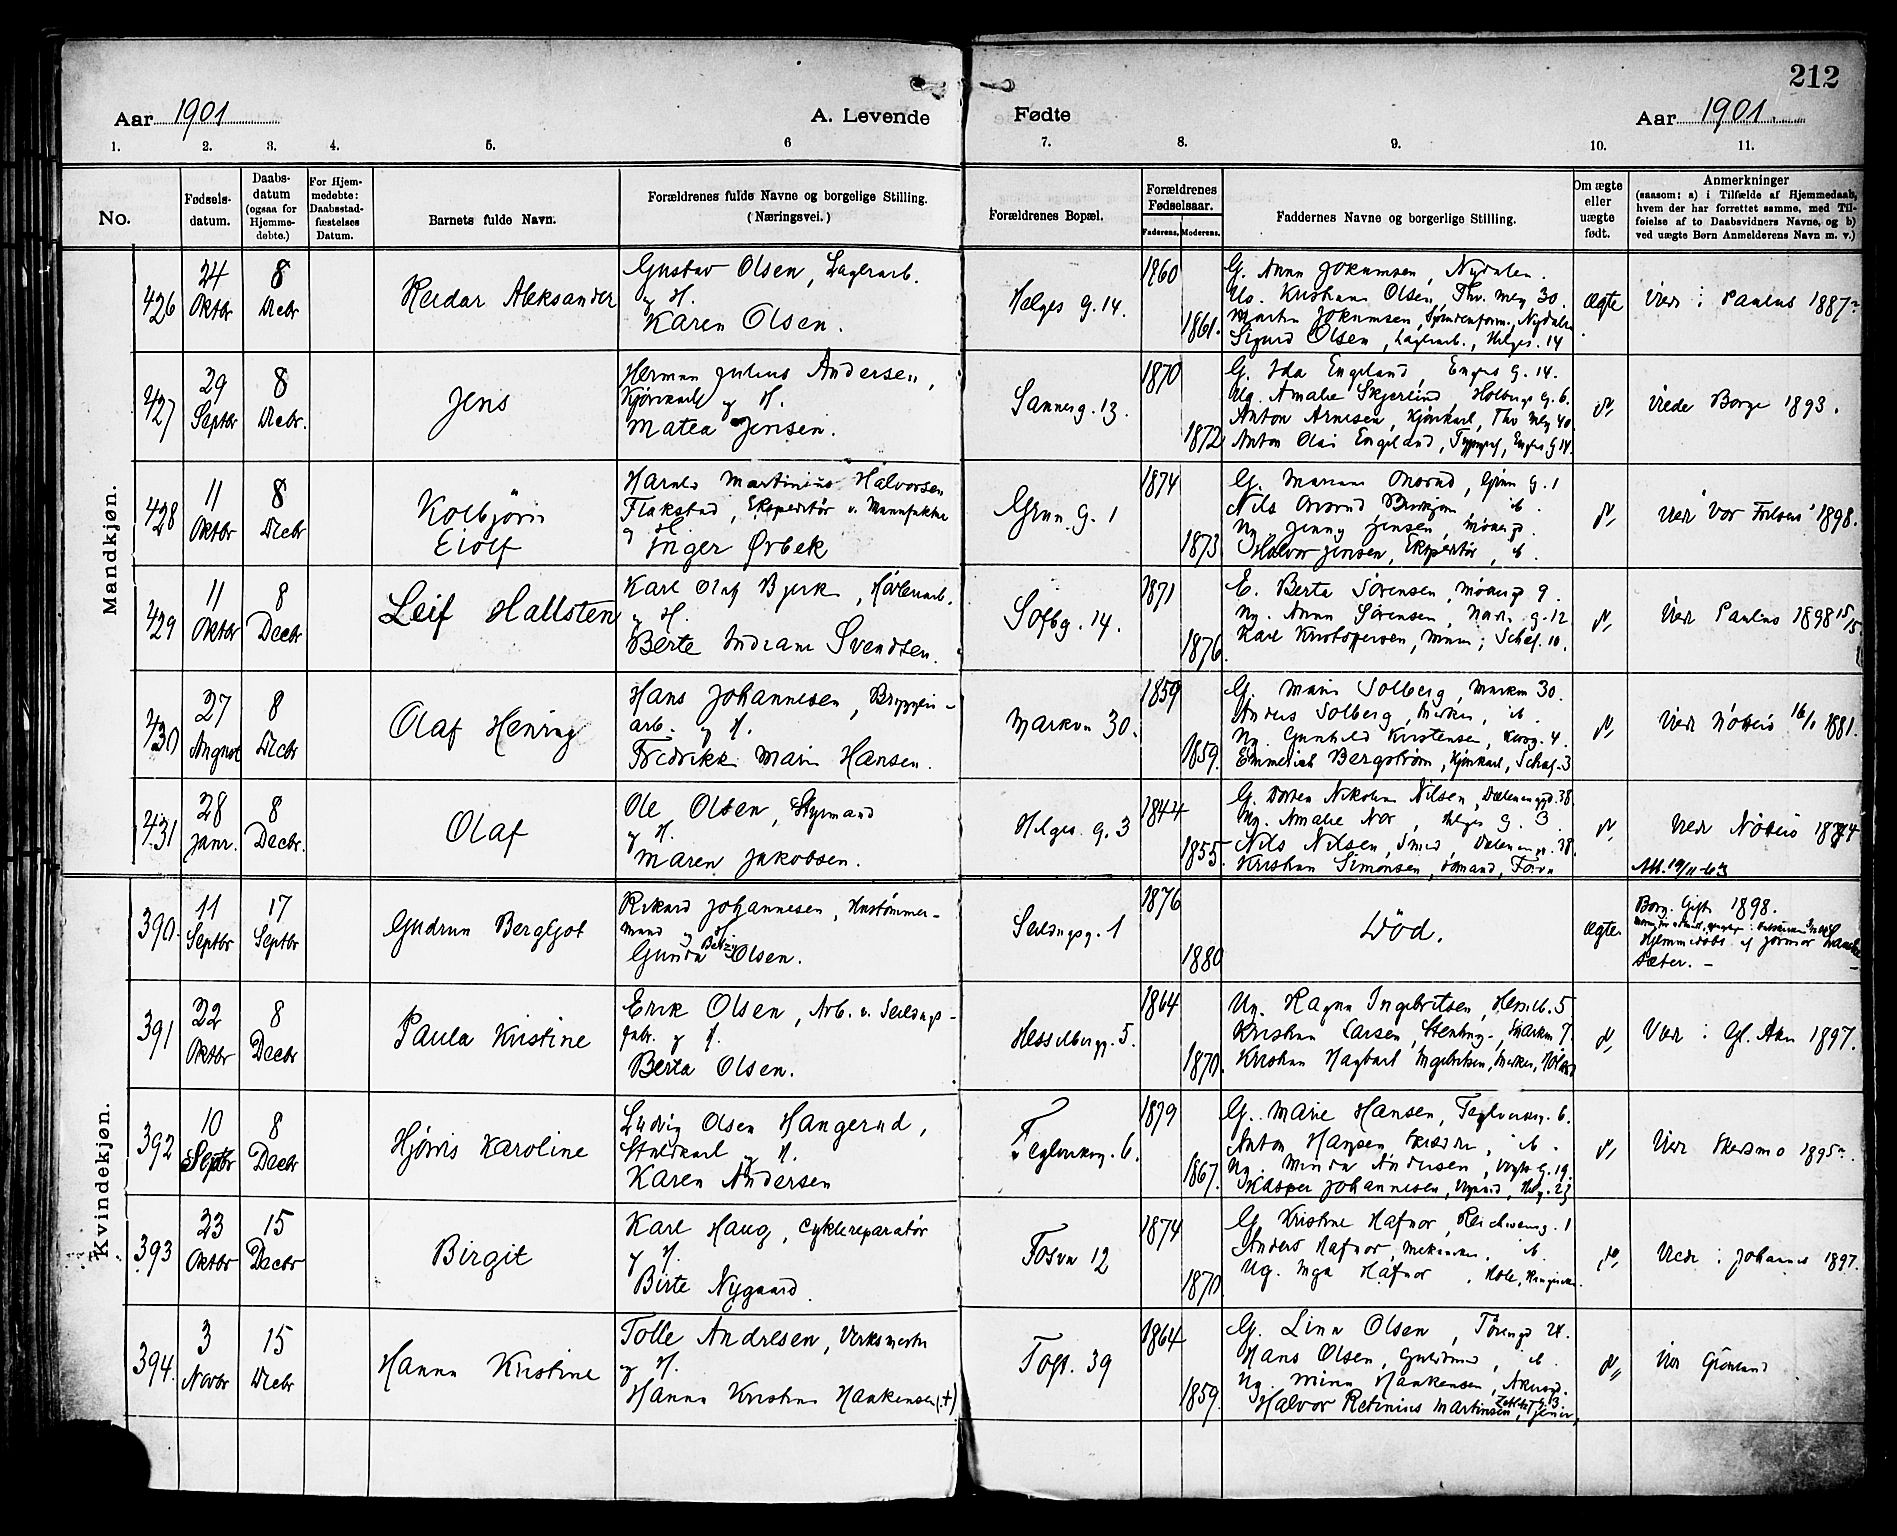 212
Aar 1901
A. Levende
Fødte
Aar 1901
1. 2. 3. 4. 5. 6 7. 8. 9. 10. 11.
No.
Fødsels-
datum.
Daabs-
datum
(ogsaa for
Hjemme-
døbte.)
For Hjem-
medøbte:
Daabsstad-
fæstelses
Datum.
Barnets fulde Navn.
Forældrenes fulde Navne og borgelige Stilling.
(Næringsvei.)
Forældrenes Bopæl.
Forældrenes
Fødselsaar.
Faderens. Moderens.
Faddernes Navne og borgerlige Stilling.
Om ægte
eller
uægte
født.
Anmerkninger
(saasom: a) i Tilfælde af Hjemmedaab,
hvem der har forrettet samme, med Til-
føielse af to Daabsvidners Navne, og b)
ved uægte Børn Anmelderens Navn m. v.)
Mandkjøn.
426
24
Oktbr
8
Decbr
Reidar Aleksander
Gustav Olsen, Lagerarb.
og H.
Karen Olsen.
Helges g. 14.
1860
1861.
G. Anna Jokumsen, Nydalen.
Kristiane Olsen, Thv. Mey 30.
Martin Jokumsen, Nydalen
Sigurd Olsen, Lagerarb., Helges. 14
ægte
Viede i Paulus 1887
427
29
Septbr
8
Decbr.
Jens
Herman Julius Andersen,
Kjørekarl og H.
Matea Jensen.
Sannerg. 13.
1870
1872
G. Ida Engeland, Enges g. 14.
Ug. Amalie Skjerlind, Holbergs g. 6.
Anton Arnesen, Kjørekarl, Thv Mey 40
Anton Olai Engeland, Typogrf, Enges g 14.
Viede Borge 1893.
428
11
Oktbr
8
Decbr
Kolbjörn
Eiolf
Harald Martinius Halvorsen
Flakstad, Ekspeditør v. Manufaktur
og H.
Inger Ørbek
Grün. G. 1
1874
1873
G. Mariane Morud, Grün G. 1
Nils Morud, ib.
Ug Jenny Jensen,
Halvor Jensen, Ekspeditør, ib.
Vied "Vor Frelsers" 1898.
429
11
Oktbr
8
Decbr
Leif Hallsten
Karl Olaf Bjerke,
og H.
Berte Indiane Svendsen.
Sofbg. 14.
1871
1876
E. Berta Sørensen, 9.
Ug. Anna Sørensen, g. 12
Karl Kristoffersen, Schaf. 10.
Vied Paulus 1898 15/5
430
27
August
8
Decbr
Olaf Hening
Hans Johannesen, Bryggeri-
arb. og H.
Fredrikke Marie Hansen.
Markvn 30.
1859
1859.
G. Marie Solberg, Markvn 30.
Anders Solberg, ib.
Ug. Gunhild Kirstensen, 4.
Emmerich Bergstrøm, Kjørekarl, Schaf. 3
Vied Nøtterø 16/1 1881.
431
28
Janr.
8
Decbr.
Olaf
Ole Olsen, Styrmand
og H.
Maren Jakobsen.
Helges. g. 3
1844
1855.
G. Nikoline Nilsen, 38.
Ug. Amalie Nor, Helges g. 3
Nils Nilsen, Smed, 38.
Kristian Simonsen,
Viede Nøtterø 1874
Att. 19/11-63
Kvindekjøn.
390.
11
Septbr
17
Septbr
Gudrun Bergljot
Rikard Johannesen, Hustømmer-
mand og H.
Gunda Betzy Olsen.
Seildugsg. 1
1876
1880
Død.
ægte.
Borg. Gift 1898.
Hjemmedøbt af Jormor
Sæter. –
391
22
Oktbr
8
Decbr
Paula Kristine
Erik Olsen, Arb. v. Seildugs-
fabr. og H.
Berta Olsen.
Hesselbergg. 5.
1864
1870.
Ug. Ragna Ingebritsen, Hesselb. 5
Kristian Larsen, Stenhug., Markvn 7.
Kristian Hagbart Ingebritsen,
Viede i Gl. Aker 1897.
392
10
Septbr
8
Decbr
Hjørris Karoline
Ludvig Olsen Haugerud,
Staldkarl og H.
Karen Andersen
Teglverksg. 6.
1879
1867.
G. Marie Hansen, Teglverksg. 6.
Anton Hansen, ib.
Ug. Minda Andersen, g. 19.
Kasper Johannesen, 23
Vied Skedsmo 1895
393
23
Oktbr
15
Decbr
Birgit
Karl Haug, Cyklereparatør
og H.
Birte Nygaard.
Fosvn 12
1874
1870
G. Kristine Hafnor, 1
Anders Hafnor, ib.
Ug. Inga Hafnor, Hole, Ringerike.
Viede i Johannes 1897.
394.
3
Novbr
15
Decbr
Hanna Kristine
Tolle Andresen, Verksmester
og H.
Hanna Kristine Haakensen (+)
Toft. 39
1864
1859.
G. Lina Olsen,
Hans Olsen, ib.
Ug. Mina Haakensen,
Halvor Retinius Martinsen,
Grønland